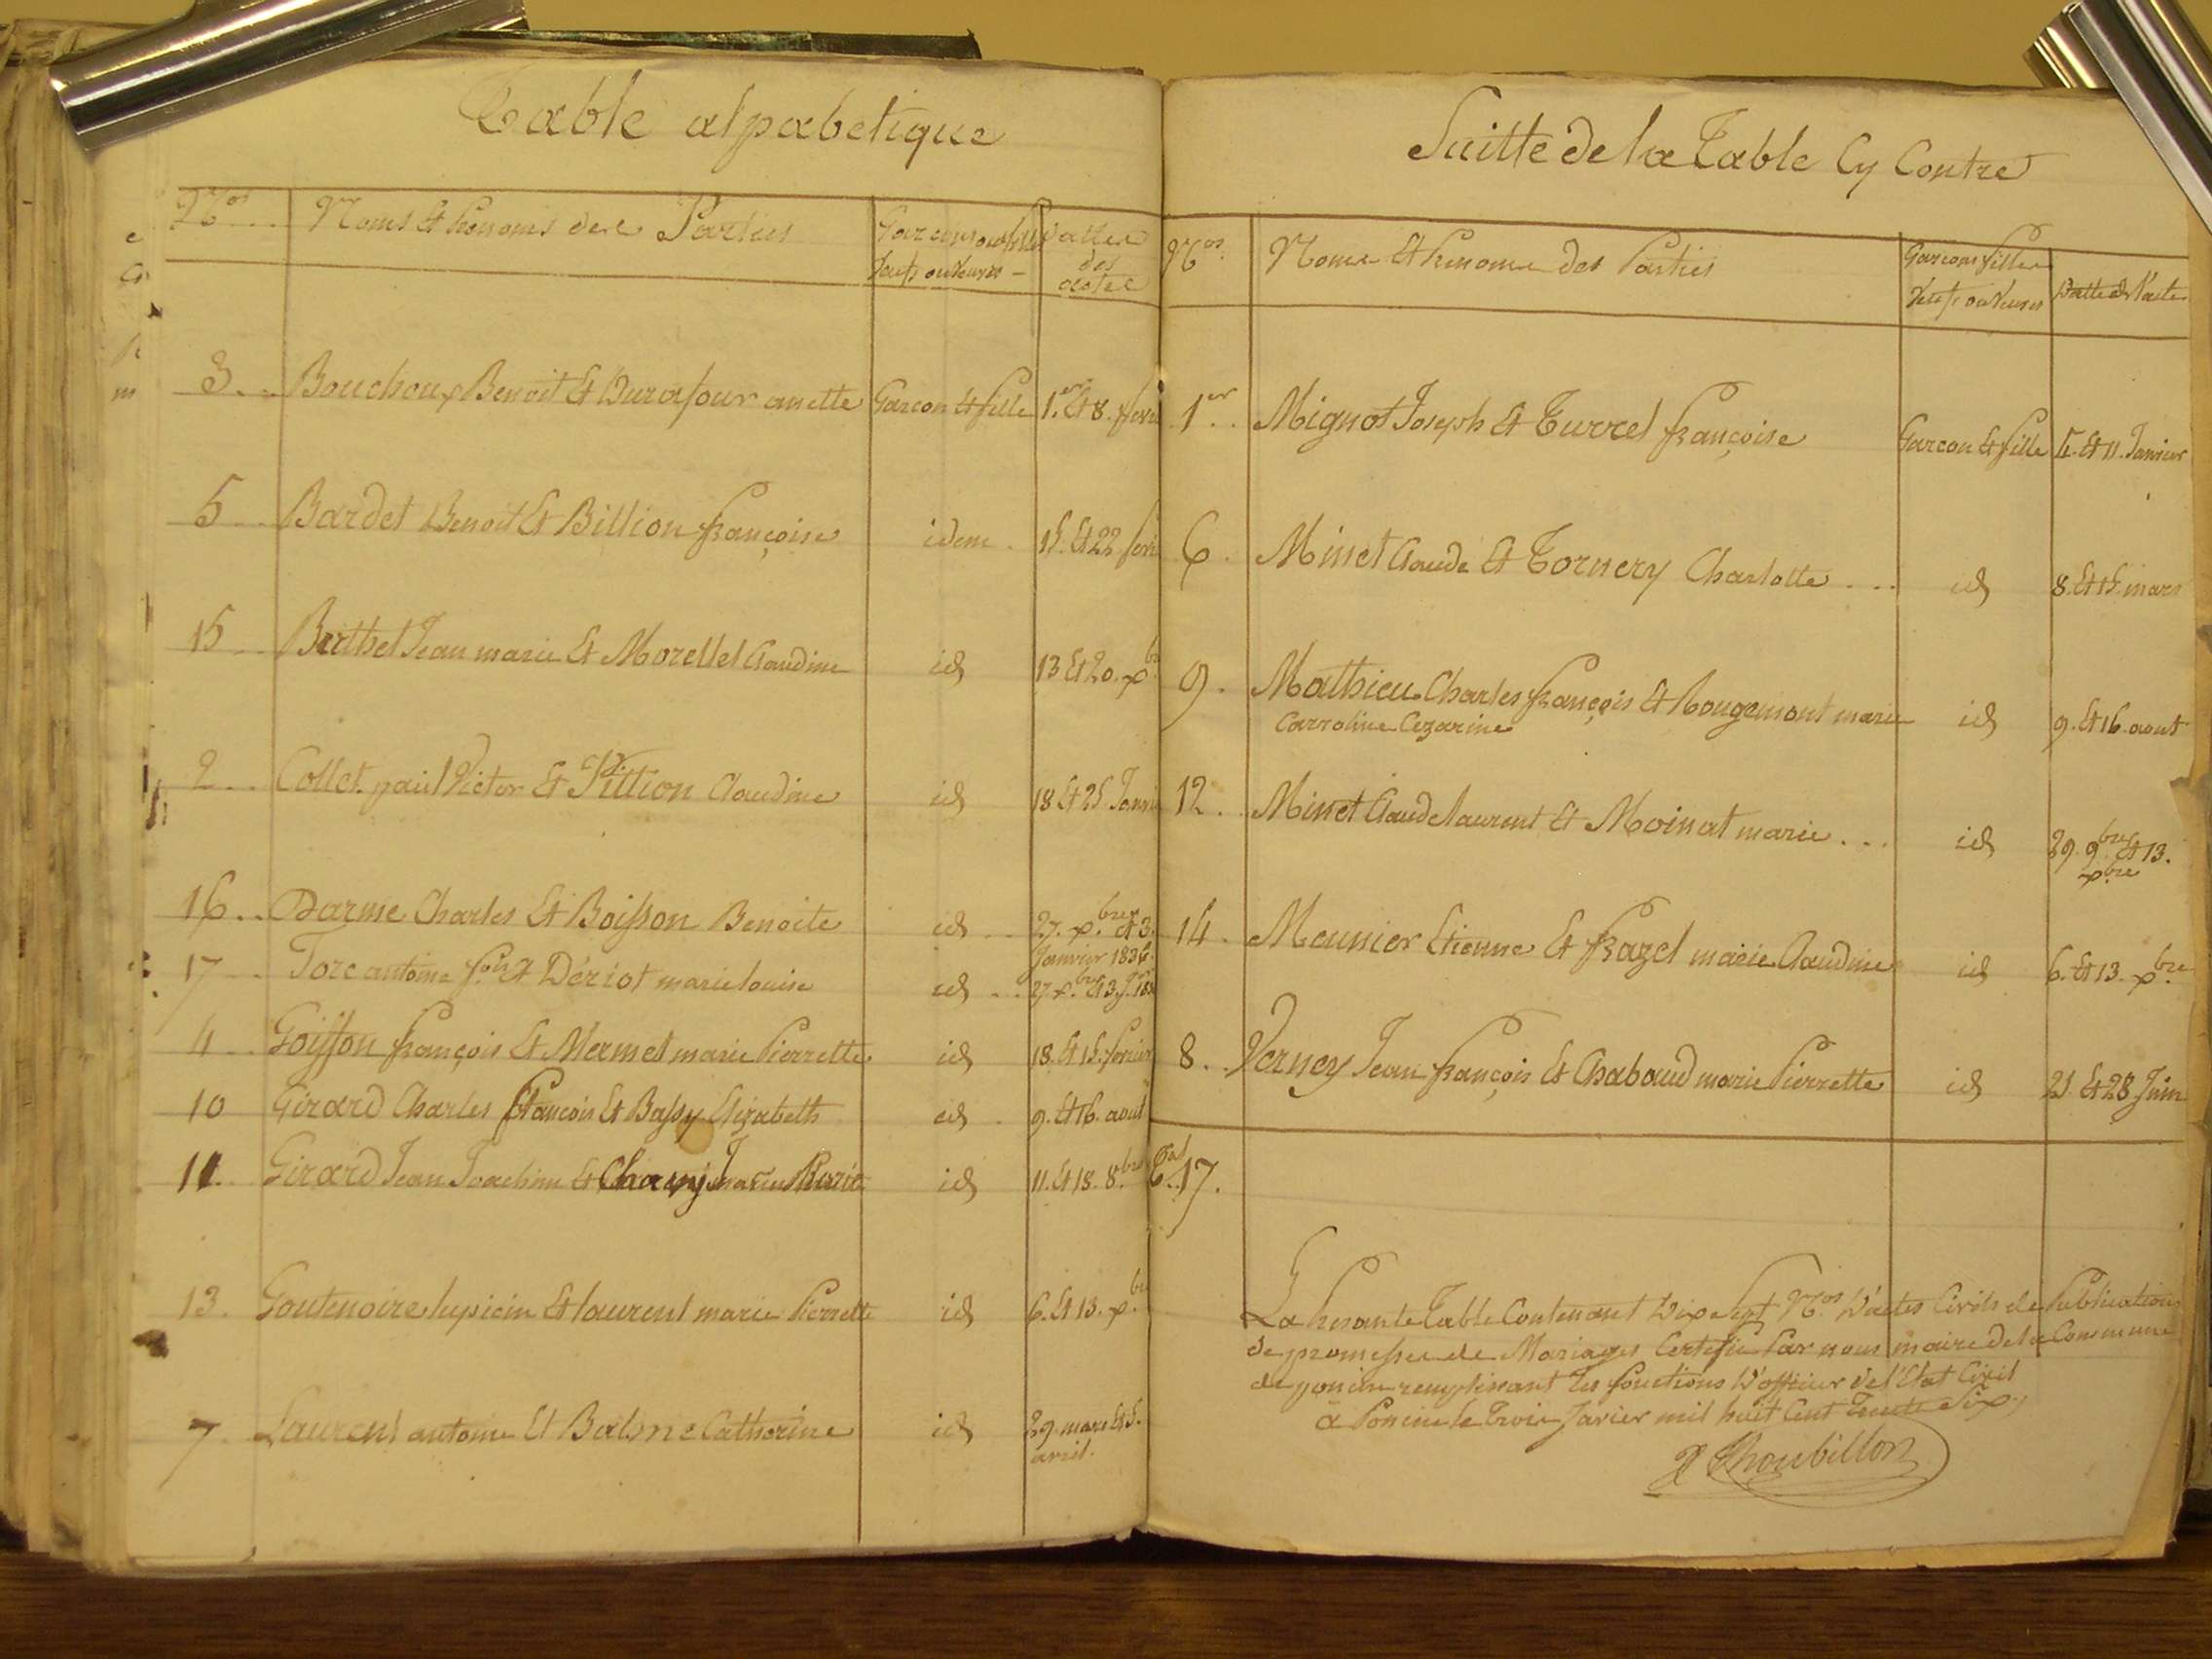 Table alpabetique
Nos Noms Et Prenoms des Parties Garcons ou filles Dattes
Veufs ou Veuves des actes
3 Bouchoux Benoit Et Durafour anette Garcon Et fille 1.er Et 8. fevri
5 Bardet Benoit Et Billion françoise idem 15. Et 22 fevri
15 Berthet Jean marie Et Morellet Claudine id 13 Et 20. xbr
2 Collet paul Victor Et Pittion Claudine id 18 Et 25 Janvi
16 Darme Charles Et Boisson Benoite id 27. xbre Et 3. Janvier 1836.
17 Fore antoine fois Et Dériot marie louise id 27 xbre Et 3 Jer 183
4 Goiffon françois Et Mermet marie Pierrette id 18. Et 15. fevrier
10 Girard Charles François Et Bassy Elizabeth id 9. Et 16. aout
11. Girard Jean Joachim Et id 11. Et 18. 8.bre
13. Goutenoire lupicin Et laurent marie Pierrette id 6. Et 13. x.br
7 Laurent antoine Et Balme Catherine id 29. mars Et 5. avril.
Suitte de la Table Cy Contre
Nos Noms Et Prenoms des Parties Garcons filles
Veufs ou Veuves Datte de l'acte
1er Mignot Joseph Et Turrel françoise Garcon Et fille Et 11. Janvier
6 Minet Claude Et Tornery Charlotte id 8. Et 15. mars
9. Mathieu Charles françois Et Rougemont marie id 9. Et 16. aout
Carroline Cezarine
12 Minet Claude laurent Et Moinat marie id 29. 9bre Et 13. xbre
14. Meunier Etienne Et frazel marie Claudine id 6. Et 13. xbre
8 Verney Jean françois Et Chabaud marie Pierrette id 21 Et 28 Juin
Tal 17.
La Presante Table Contenant Dix Sept Nos D'actes Civils de Publications
de promesses de Mariages Certifié Par nous maire de la Commune
de poncin remplissant les fonctions D'officier de l'Etat Civil
a Poncin le Trois Janvier mil huit Cent Trente Six